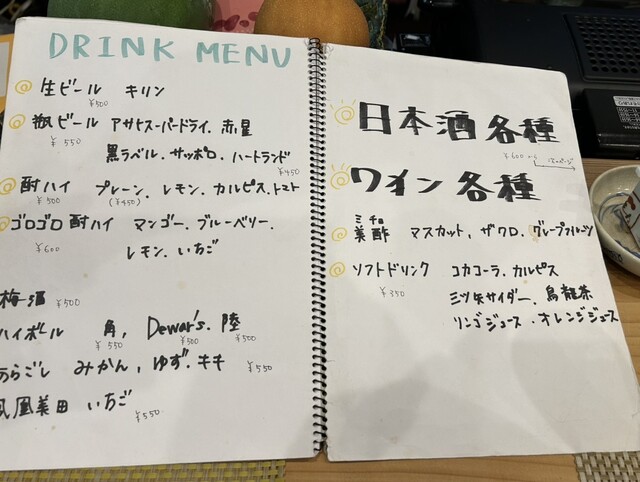 DRINK MENU
生ビール キリン
¥500
瓶ビール アサヒスーパードライ、赤星
¥550
黒ラベル、サッポロ、ハートランド
¥450
酎ハイ プレーン、レモン、カルピス、トマト
¥500 (¥450)
ゴロゴロ酎ハイ マンゴー、ブルーベリー、
¥600
レモン、いちご
梅酒 ¥500
ハイボール 角、Dewar's、陸
¥550 ¥500 ¥500
あらごし みかん、ゆず、モモ ¥550
鳳凰美田 いちご ¥550
日本酒各種
¥600~ 次のページ
ワイン各種
ミチョ
美酢 マスカット、ザクロ、グレープフルーツ
ソフトドリンク コカコーラ、カルピス
¥350
三ツ矢サイダー、烏龍茶
リンゴジュース・オレンジジュース